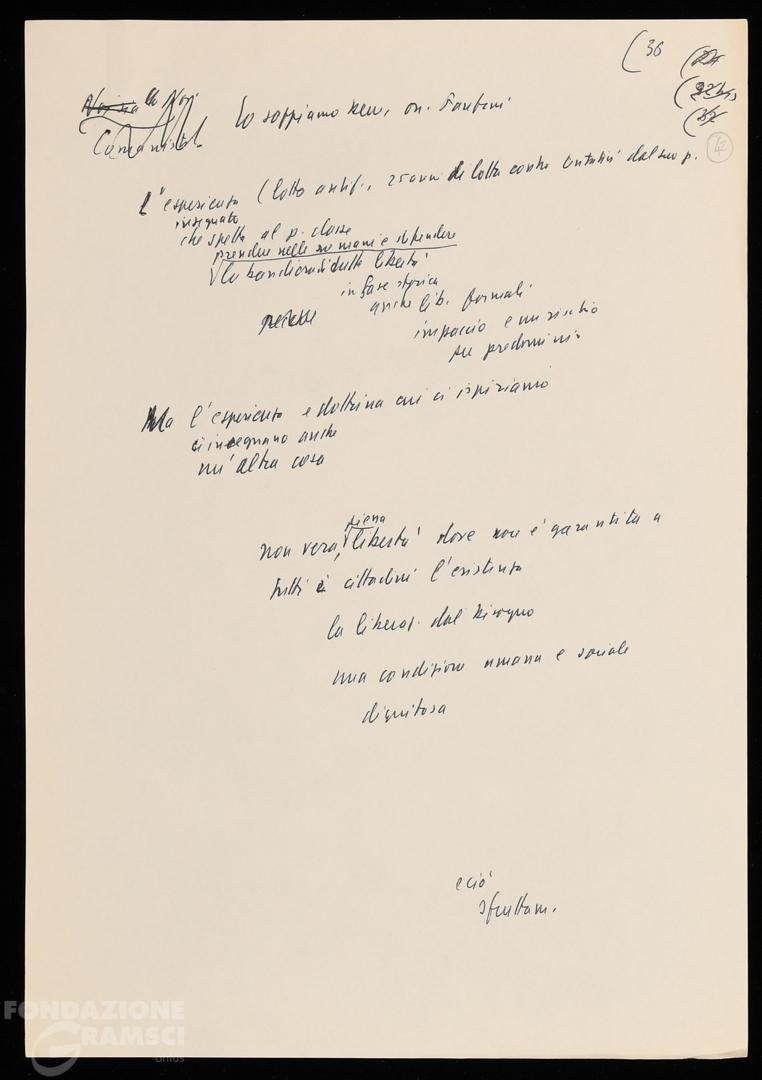 (36
42
Noi
Comunisti
Lo sappiamo bene, on. Fanfani
L'esperienza (lotta antif., 25 anni di lotta contro tentativi dal suo p.
insegnato
che spetta al p. classe
prendere nelle sue mani e difendere
la bandiera di tutte libertà
in fase storica
anche lib. formali
impaccio e un rischio
predominio
Ma l'esperienza e dottrina cui ci ispiriamo
ci insegnano anche
un'altra cosa
piena
non vera, libertà dove non è garantita a
tutti i cittadini l'esistenza
la liberaz. dal bisogno
una condizione umana e sociale
dignitosa
e ciò
sfruttam.
FONDAZIONE
GRAMSCI
onlus